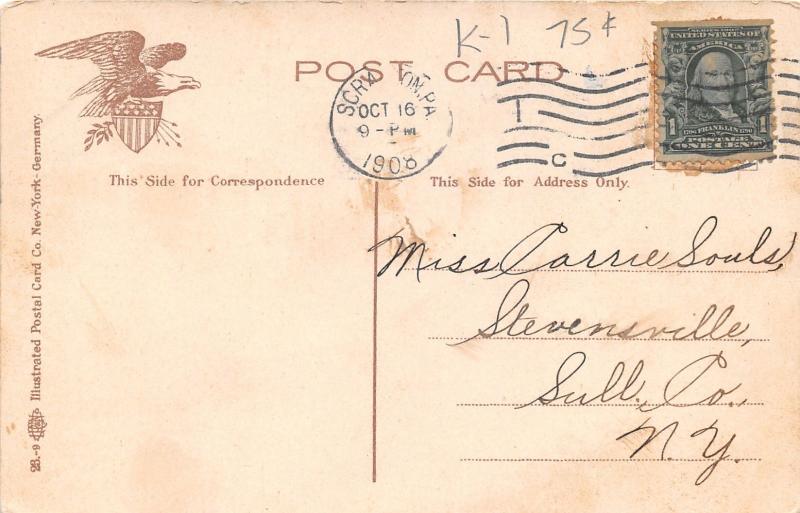 K-1 75¢
POST CARD
SCRANTON, PA.
OCT 16
9-PM
1908
C
SERIES 1902
UNITED STATES OF
AMERICA
1 1706 FRANKLIN 1790 1
POSTAGE
ONE CENT
This Side for Correspondence
This Side for Address Only.
Miss Carrie Souls,
Stevensville,
Sull. Co.,
N.Y.
23.-9 Illustrated Postal Card Co. New-York-Germany.